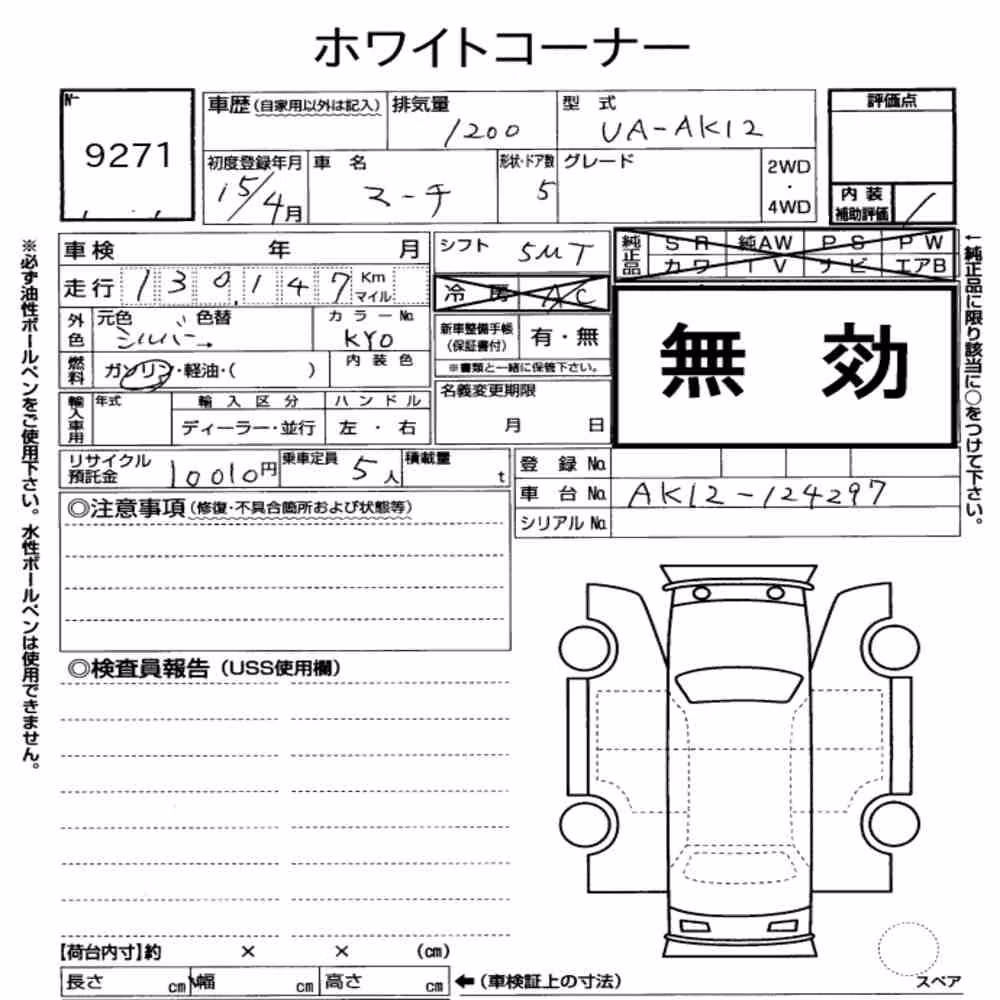 ホワイトコーナー
No
9271
車歴(自家用以外は記入)
排気量
1200
型式
UA-AK12
評価点
初度登録年月
15/4月
車名
マーチ
形状・ドア数
5
グレード
2WD
・
4WD
内装
補助評価
車検 年 月
シフト
5MT
純正品
SR 純AW PS PW
カワ TV ナビ エアB
走行
130,147
Km
マイル
冷房 AC
外色
元色 色替
シルバー→
カラーNo.
KY0
新車整備手帳
(保証書付)
有・無
※書類と一緒に保管下さい。
無効
燃料
ガソリン・軽油・( )
内装色
名義変更期限
月 日
輸入車用
年式
輸入区分
ディーラー・並行
ハンドル
左・右
リサイクル
預託金
10010円
乗車定員
5人
積載量
t
登録No.
車台No.
AK12-124297
シリアルNo.
◎注意事項(修復・不具合箇所および状態等)
◎検査員報告(USS使用欄)
【荷台内寸】約 × × (cm)
長さ cm 幅 cm 高さ cm
←(車検証上の寸法)
スペア
※必ず油性ボールペンをご使用下さい。水性ボールペンは使用できません。
←純正品に限り該当に○をつけて下さい。